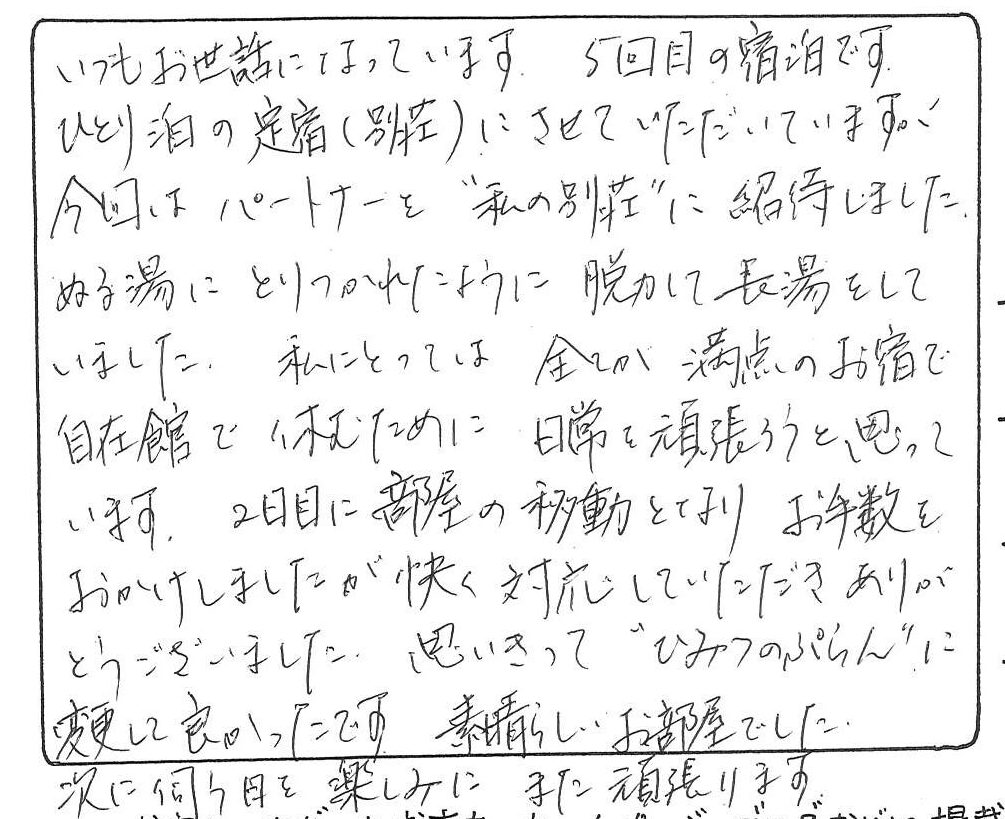 いつもお世話になっています. 5回目の宿泊です.
ひとり泊の定宿(別荘)にさせていただいていますが、
今回はパートナーを“私の別荘”に紹待しました.
ぬる湯にとりつかれたように脱力して長湯をして
いました. 私にとっては全てが満点のお宿で
自在館で休むために日常を頑張ろうと思って
います. 2日目に部屋の移動となりお手数を
おかけしましたが快く対応していただきありが
とうございました. 思いきって“ひみつのぷらん”に
変更して良かったです. 素晴らしいお部屋でした.
次に伺う日を楽しみにまた頑張ります.